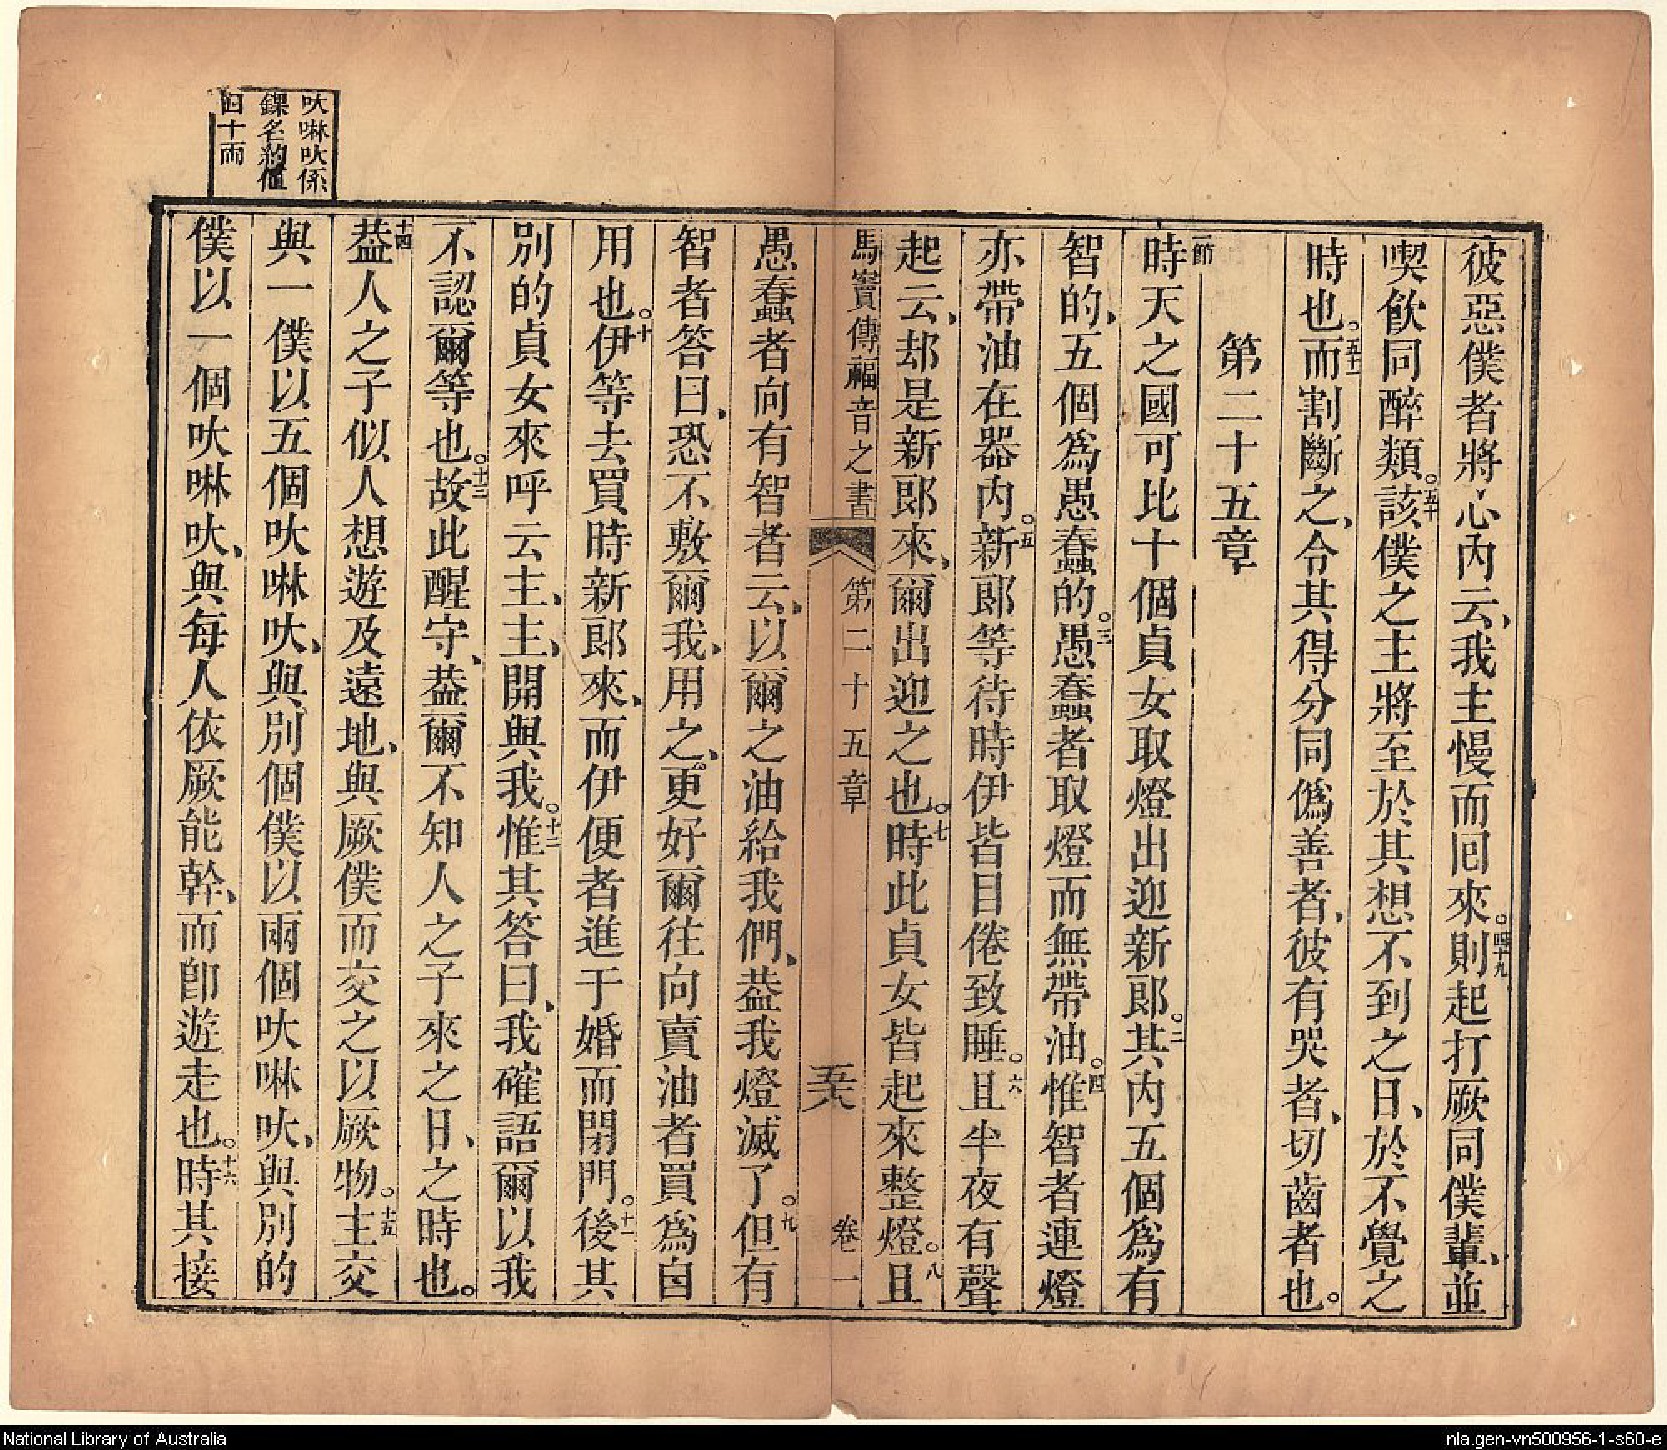 彼惡僕者將心內云、我主慢而囘來。四十九則起打厥同僕輩、並
喫飲同醉類。五十該僕之主將至於其想不到之日、於不覺之
時也。五十一而割斷之、令其得分同僞善者、彼有哭者、切齒者也。
第二十五章
一節時天之國可比十個貞女取燈出迎新郎。二其內五個爲有
智的、五個爲愚蠢的。三愚蠢者取燈而無帶油。四惟智者連燈
亦帶油在器內。五新郎等待時伊皆目倦致睡。六且半夜有聲
起云、却是新郎來、爾出迎之也。七時此貞女皆起來整燈。八且
馬竇傳福音之書 第二十五章 五六 卷一
愚蠢者向有智者云、以爾之油給我們、葢我燈滅了。九但有
智者答曰、恐不敷爾我、用之、更好爾往向賣油者買爲自
用也。十伊等去買時新郎來、而伊便者進于婚而閉門。十一後其
別的貞女來呼云主、主、開與我。十二惟其答曰、我確語爾以我
不認爾等也。十三故此醒守、葢爾不知人之子來之日、之時也。
十四葢人之子似人想遊及遠地、與厥僕而交之以厥物。十五主交
與一僕以五個吙啉吙、與別個僕以兩個吙啉吙、與別的
僕以一個吙啉吙、與每人依厥能幹、而卽遊走也。十六時其接
吙啉吙係
錁名約值
四十兩
National Library of Australia
nla.gen-vn500956-1-s60-e